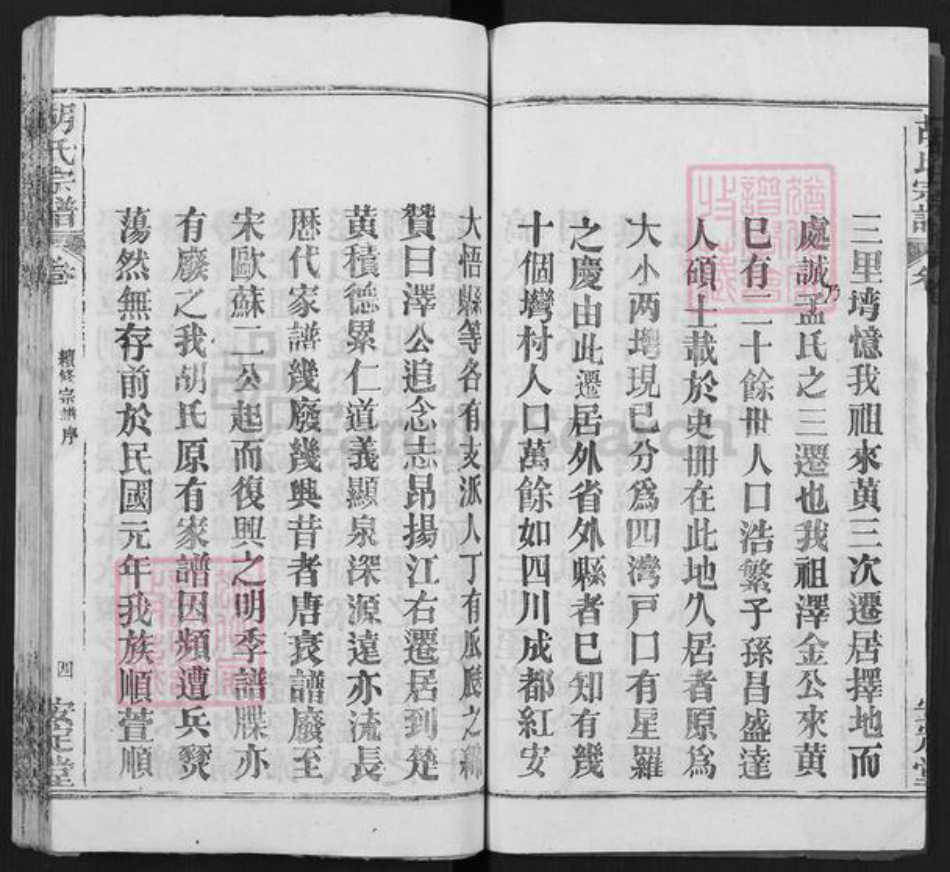 三里塆憶我祖來黃三次遷居擇地而
處誠乃孟氏之三遷也我祖澤金公來黃
已有二十餘世人口浩繁子孫昌盛達
人碩士載於史冊在此地久居者原為
大小两塆現已分爲四灣戶口有星羅
之慶由此遷居外省外縣者已知有幾
十個塆村人口萬餘如四川成都紅安
大悟縣等各有支派人丁有瓜瓞之綿
贊曰澤公追念志昂揚江右遷居到楚
黃積德累仁道義顯泉深源遠亦流長
歷代家譜幾廢幾興昔者唐衰譜廢至
宋歐蘇二公起而復興之明季譜牒亦
有廢之我胡氏原有家譜因頻遭兵燹
蕩然無存前於民國元年我族順萱順
胡氏宗譜
卷
續修宗譜序
四
安定堂